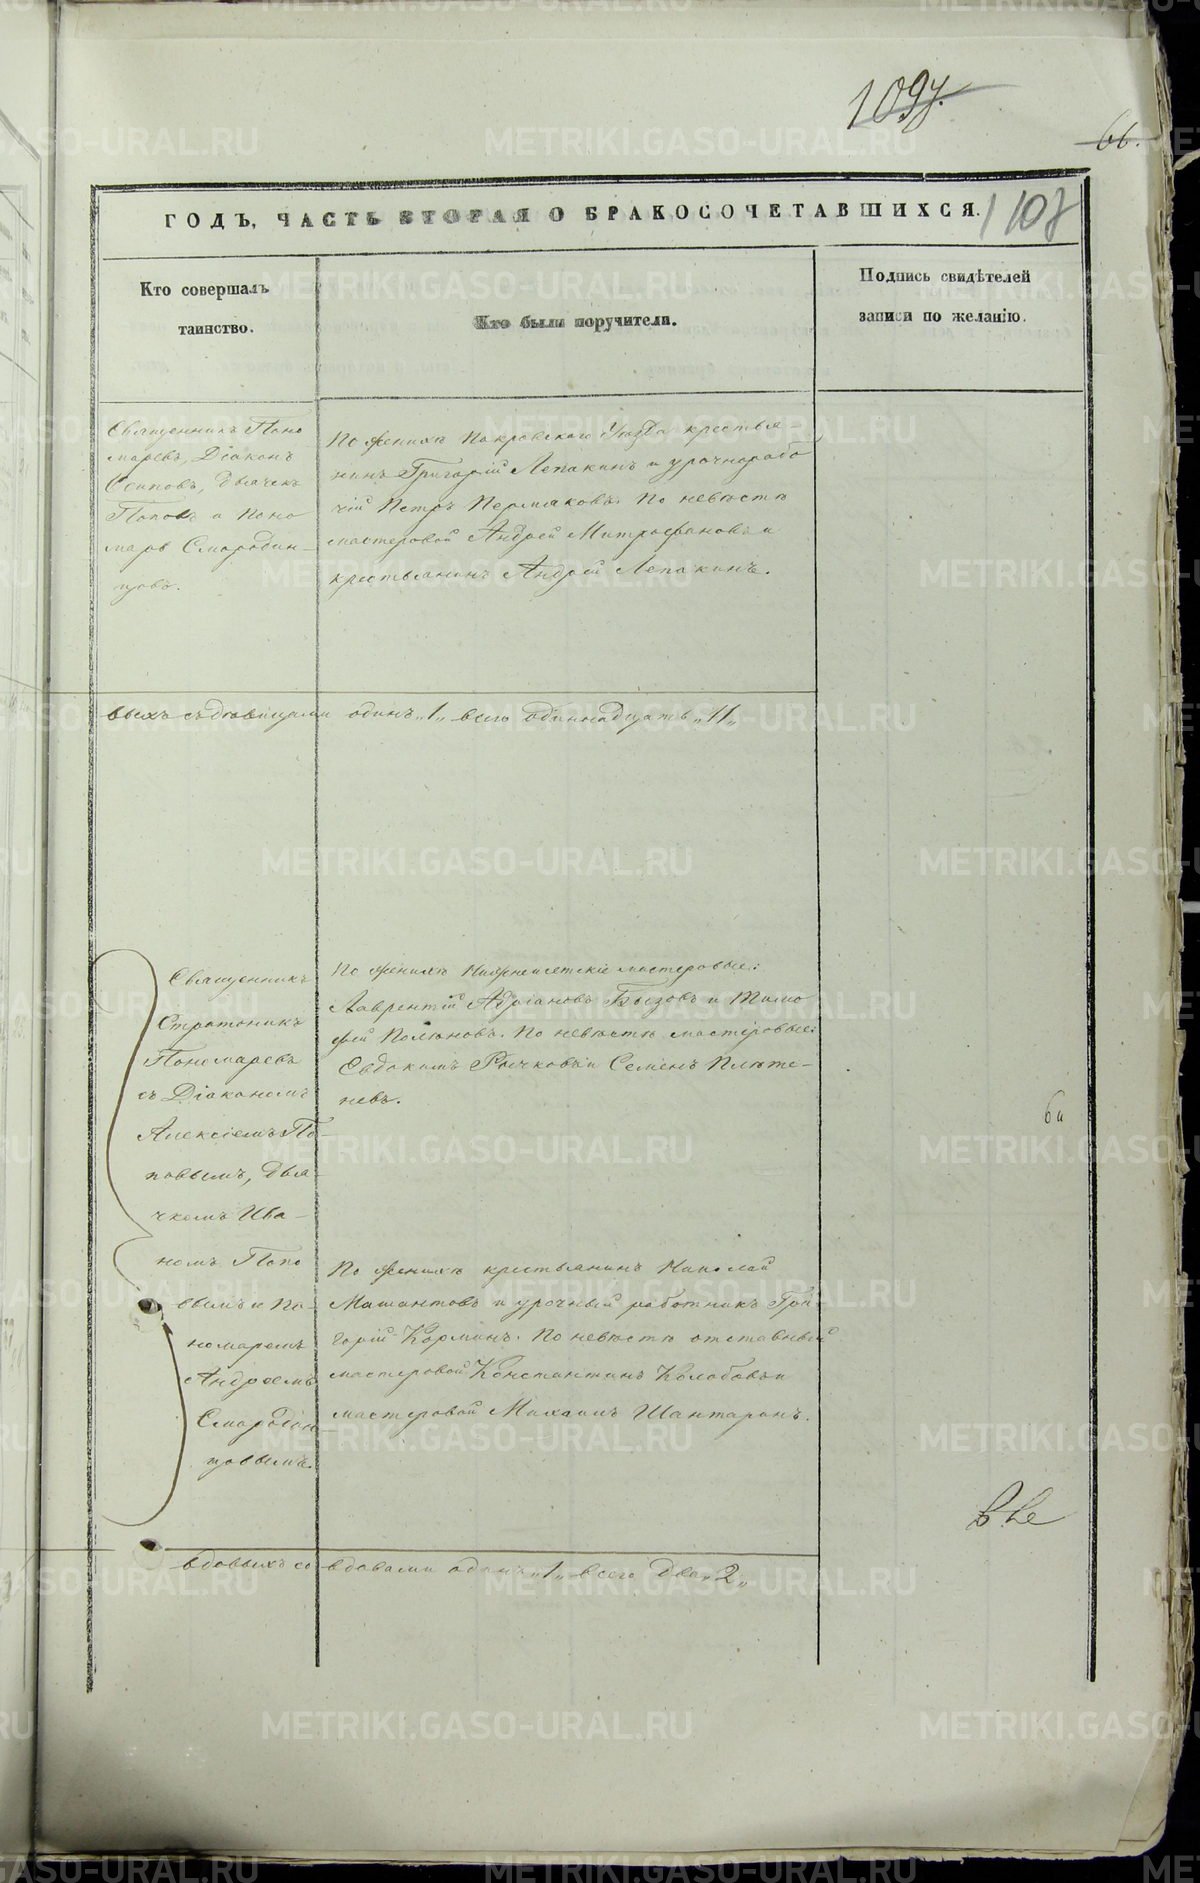 1097.
66.
ГОДЪ, ЧАСТЬ ВТОРАЯ О БРАКОСОЧЕТАВШИХСЯ.
1107
Кто совершалъ
таинство.
Кто были поручители.
Подпись свидѣтелей
записи по желанію.
Священникъ Поно
маревъ, Діаконъ
Осиповъ, дьячекъ
Поповъ и Поно
марь Смородин-
цовъ.
По женихѣ Покровскаго крестья-
нинъ Григорій Лепакинъ и урочнорабо
чій Петръ Пермяковъ. По невѣстѣ
мастеровой Андрей Митрофановъ и
крестьянинъ Андрей Лепакинъ.
выхъ съ дѣвицами одинъ „1„ всего одиннадцать „11„
Священникъ
Стратоникъ
Пономаревъ
съ Діакономъ
Алексіемъ По-
повымъ, дья-
чкомъ Ива-
номъ Попо
вымъ и По-
номаремъ
Андреемъ
Смородин-
цовымъ.
По женихѣ Нижнеисетскіе мастеровые:
Лаврентій Адріановъ Бызовъ и Тимо
фей По невѣстѣ мастеровые:
Евдокимъ Рычковъ и Семенъ Плюте-
невъ.
По женихѣ крестьянинъ Николай
Машантовъ и урочный работникъ Гри-
горій Корминъ. По невѣстѣ отставный
мастеровой Константинъ Колобовъ и
мастеровой Михаилъ Шантаринъ.
вдовыхъ со вдовами одинъ „1„ всего два „2„